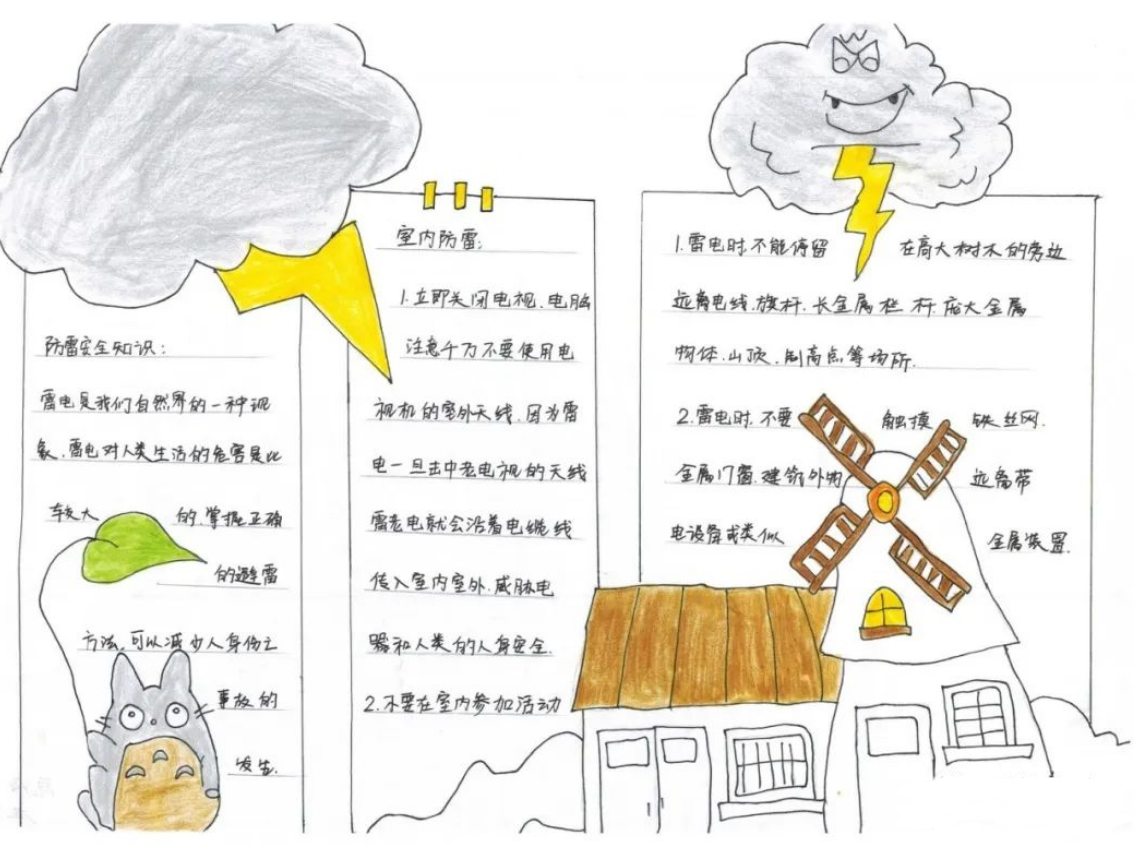 防雷安全知识:
雷电是我们自然界的一种现
象.雷电对人类生活的危害是比
较大 的.掌握正确
的避雷
方法,可以减少人身伤亡
事故的
发生.
室内防雷:
1.立即关闭电视.电脑
注意千万不要使用电
视机的室外天线.因为雷
电一旦击中老电视的天线
雷老电就会沿着电缆线
传入室内室外.威胁电
器和人类的人身安全.
2.不要在室内参加活动
1.雷电时.不能停留 在高大树木的旁边
远离电线.旗杆.长金属栏杆.庞大金属
物体.山顶.制高点等场所.
2.雷电时.不要 触摸 铁丝网.
金属门窗.建筑外构 远离带
电设备或类似 金属装置.